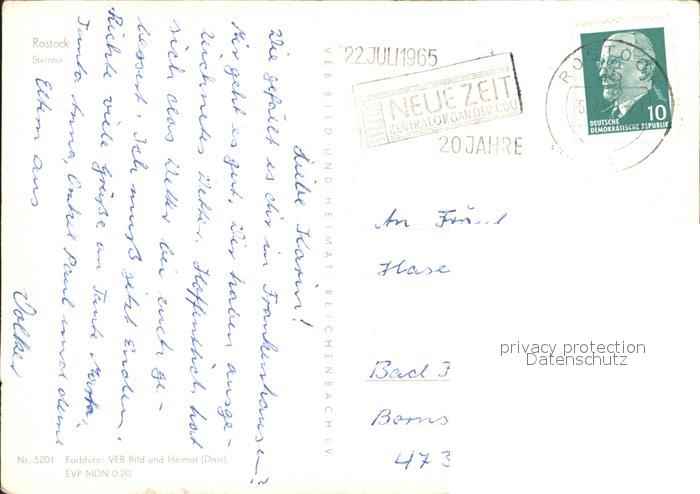 Rostock
Steintor
Liebe Karin!
Wie gefällt es dir in Frankenhausen?
Mir geht es gut. Wir haben ausge-
zeichnetes Wetter. Hoffentlich hat
sich das Wetter bei euch ge-
bessert. Ich muß jetzt Enden.
Richte viele Grüße an Tante Marta,
Tante Anna, Onkel Paul und deine
Eltern aus
Volker
Nr. 5201 Farbfoto: VEB Bild und Heimat (Darr)
EVP MDN 0,20
VEB BILD UND HEIMAT · REICHENBACH I. V.
22.JULI1965
NEUE ZEIT
ZENTRALORGAN DER CDU
20 JAHRE
ROSTOCK
10
DEUTSCHE
DEMOKRATISCHE REPUBLIK
An Fräul
Hase
privacy protection
Datenschutz
Bad F
Borns
473